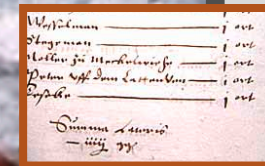 Wesselman j ort
Stegeman j ort
Moller zu Meckelwische j ort
Peter uff dem Lattenven j ort
Leseke j ort
Summa Lateris